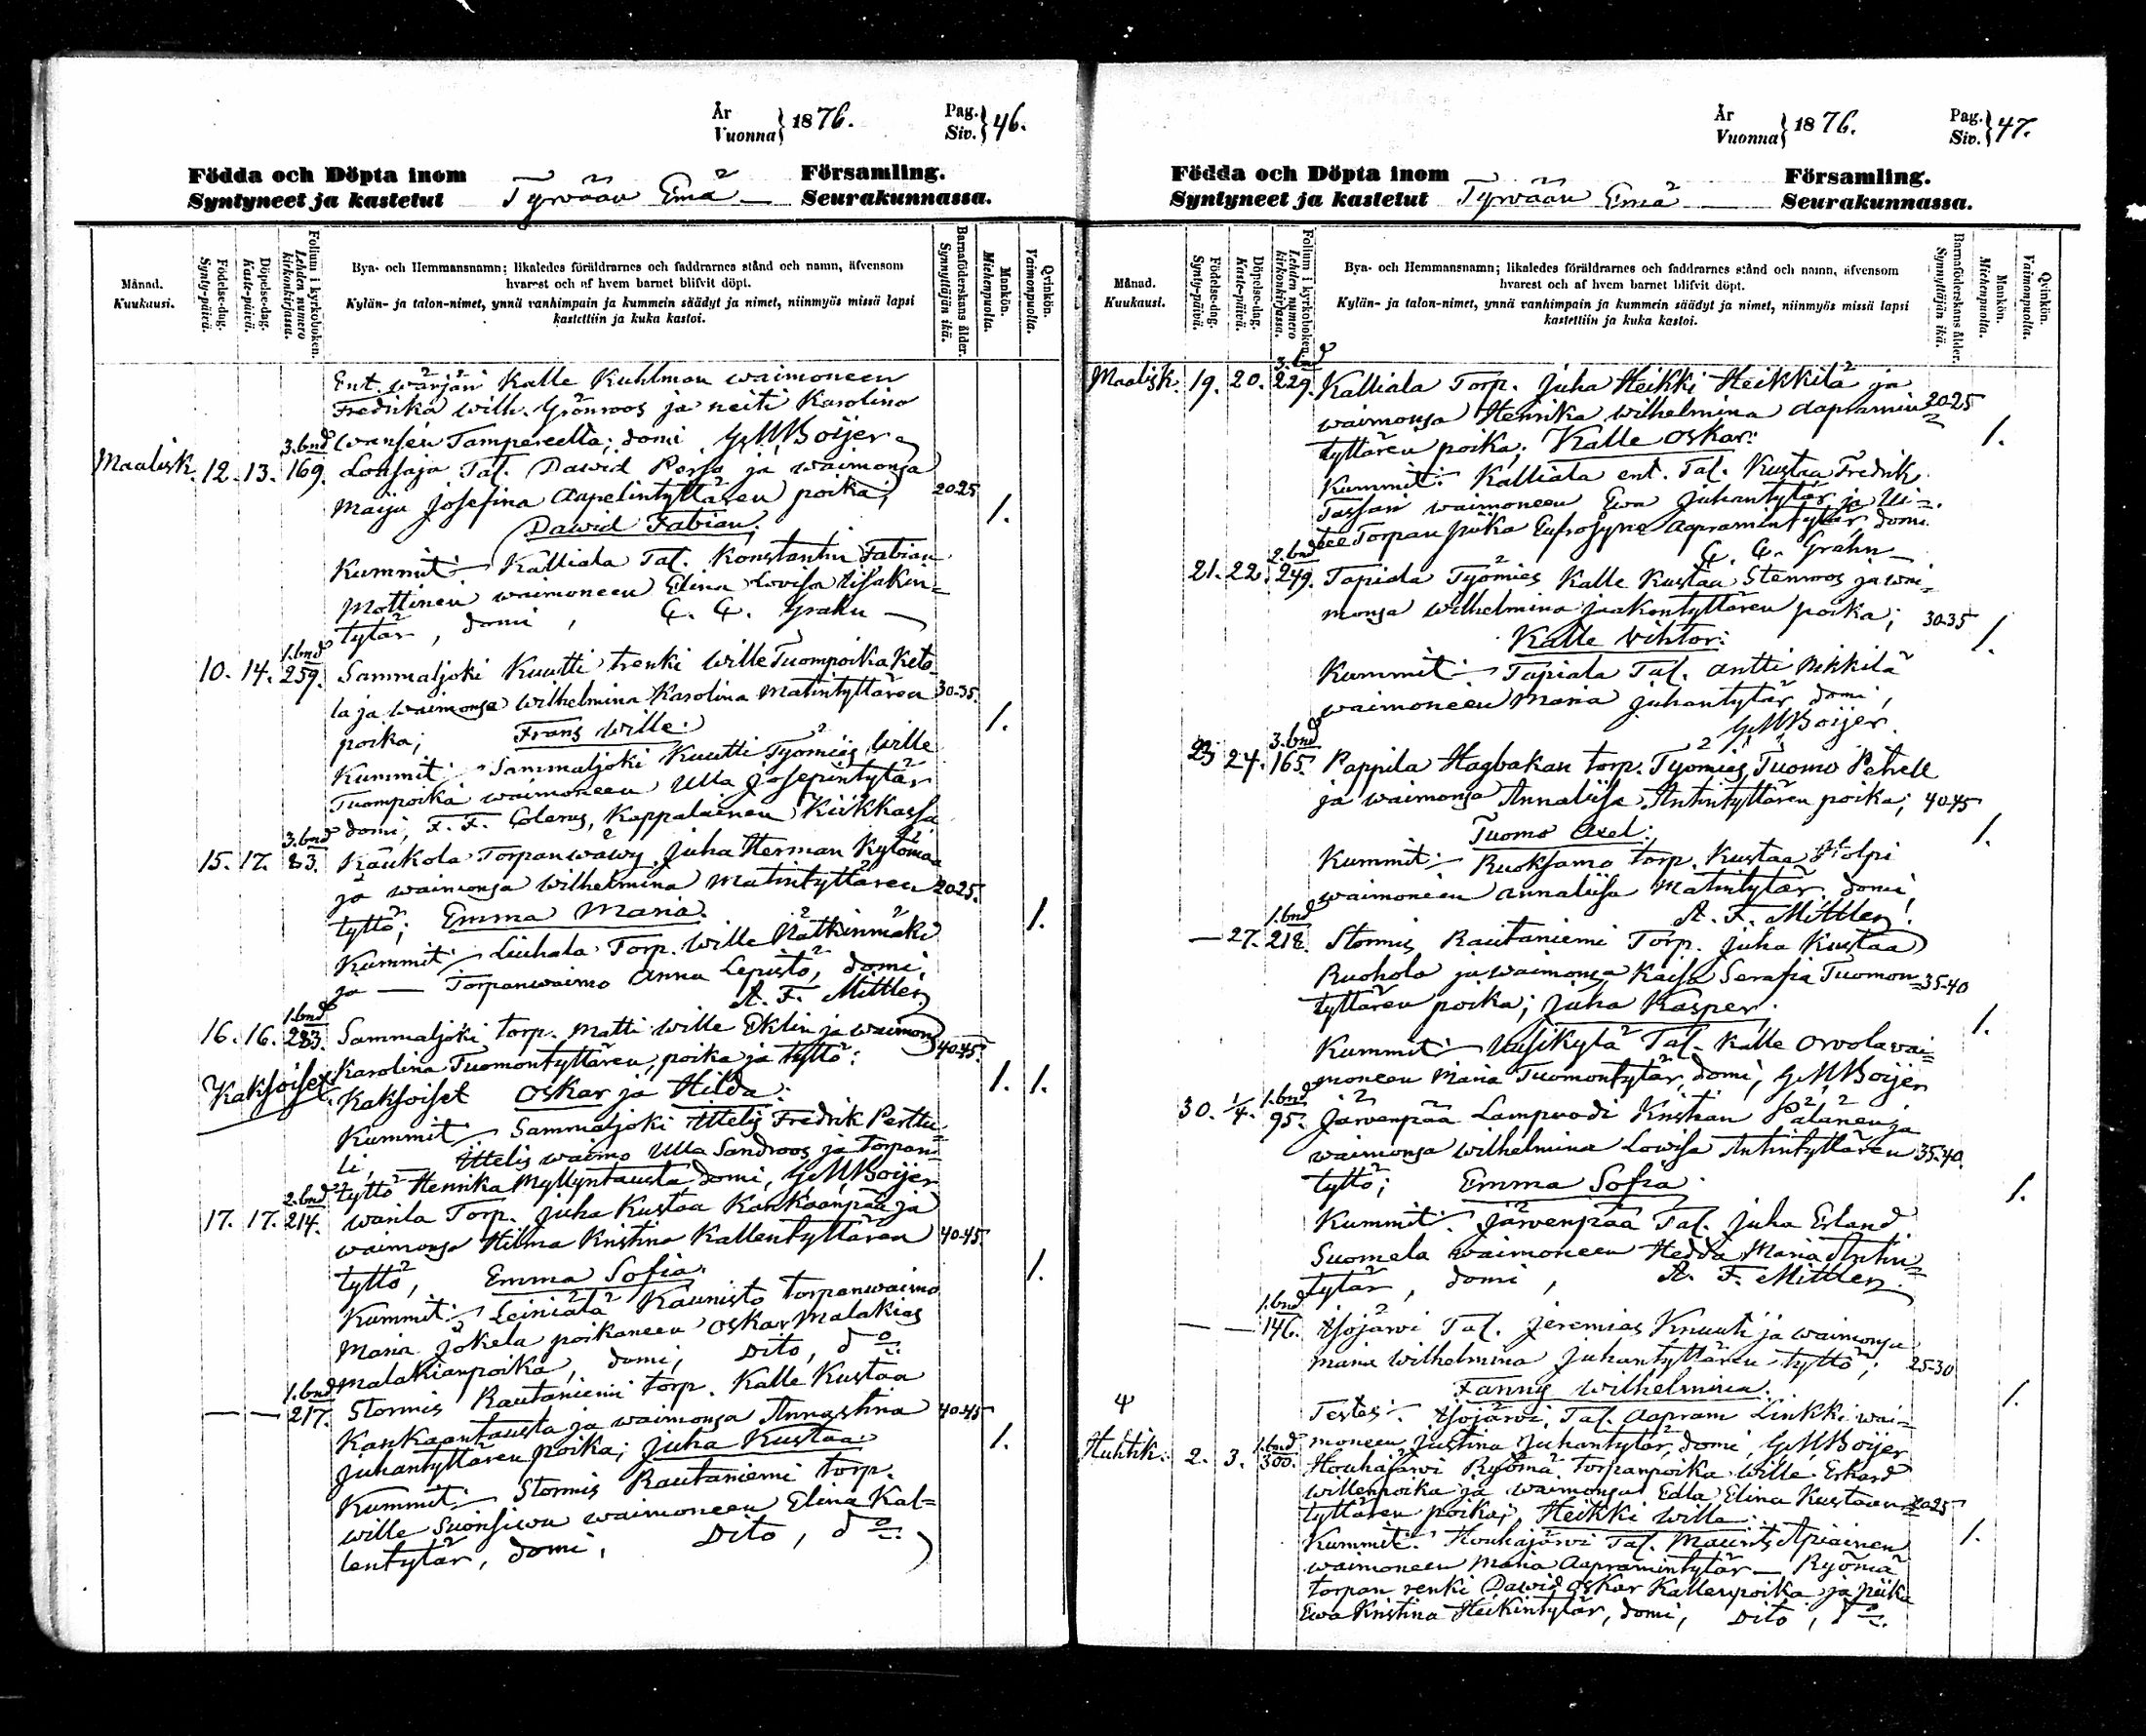 År
Vuonna } 1876.
Pag.
Siv. } 46.
Födda och Döpta inom Församling.
Syntyneet ja kastetut Tyrvään Emä Seurakunnassa.
Månad.
Kuukausi.
Födelse-dag.
Synty-päivä.
Döpelse-dag.
Kaste-päivä.
Folium i kyrkoboken.
Lehden numero
kirkonkirjassa.
Bya- och Hemmansnamn; likaledes föräldrarnes och faddrarnes stånd och namn, äfvensom
hvarest och af hvem barnet blifvit döpt.
Kylän- ja talon-nimet, ynnä vanhimpain ja kummein säädyt ja nimet, niinmyös missä lapsi
kastettiin ja kuka kastoi.
Barnaföderskans ålder.
Synnyttäjän ikä.
Mankön.
Miehenpuolta.
Qvinkön.
Vaimonpuolta.
Ent. wärjäri Kalle Kuhlman waimoneen
Fredrika wilh. Grönroos ja neiti Karolina
Tampereella; domi GMBoijer
Maalisk. 12. 13. 3.bnd 169. Lousaja Tal. Dawid Perja ja waimonsa
Maiju Josefina Aapelintyttären poika; 20-25
Dawid Fabian. 1.
Kummit: Kalliala Tal. Konstantin Fabian
Mottinen waimoneen Elina Lovisa Iisakin=
tytär, domi, G. G. Grahn
10. 14. 1.bnd 259. Sammaljoki Kuutti trenki Wille Tuompoika Keto
la ja waimonsa Wilhelmina Karolina Matintyttären 30-35.
poika; Frans Wille: 1.
Kummit: Sammaljoki Kuutti Työmies Wille
Tuompoika waimoneen Ulla Josepintytär
domi, F. F. Colerus, Kappalainen Kiikkassa
15. 17. 3.bnd 83. Kaukola Torpanwäwy Juha Herman Kylömaa
ja waimonsa Wilhelmina Matintyttären 20-25.
tyttö; Emma Maria. 1.
Kummit: Liuhala Torp. Wille Nätkinmäki
ja — Torpanwaimo Anna Lepistö, domi,
A. F. Mittler
16. 16. 1.bnd 283. Sammaljoki torp. Matti Wille Eklin ja waimons
Kaksoiset. Karolina Tuomontyttären, poika ja tyttö: 40-45.
Kaksoiset Oskar ja Hilda: 1. 1.
Kummit: Sammaljoki Ittelis Fredrik Perttu=
li, — Ittelis waimo Ulla Sandroos ja Torpan=
tyttö Henrika Myllyntausta domi, GMBoijer
17. 17. 2.bnd 214. Warila Torp. Juha Kustaa Kankaanpää ja
waimonsa Hilma Kristina Kallentyttären 40-45.
tyttö, Emma Sofia. 1.
Kummit: Leiniälä Kaunisto torpanwaimo
Maria Jokela poikaneen Oskar Malakias
Malakianpoika, domi, Dito, do
— — 1.bnd 217. Stormis Rautaniemi torp. Kalle Kustaa
Kankaantausta ja waimonsa Annastina 40-45
Juhantyttären poika; Juha Kustaa: 1.
Kummit: Stormis Rautaniemi torp.
Wille Suonsiwu waimoneen Elina Kal=
lentytär, domi, Dito, do
År
Vuonna } 1876.
Pag.
Siv. } 47.
Födda och Döpta inom Församling.
Syntyneet ja kastetut Tyrvään Emä Seurakunnassa.
Månad.
Kuukausi.
Födelse-dag.
Synty-päivä.
Döpelse-dag.
Kaste-päivä.
Folium i kyrkoboken.
Lehden numero
kirkonkirjassa.
Bya- och Hemmansnamn; likaledes föräldrarnes och faddrarnes stånd och namn, äfvensom
hvarest och af hvem barnet blifvit döpt.
Kylän- ja talon-nimet, ynnä vanhimpain ja kummein säädyt ja nimet, niinmyös missä lapsi
kastettiin ja kuka kastoi.
Barnaföderskans ålder.
Synnyttäjän ikä.
Mankön.
Miehenpuolta.
Qvinkön.
Vaimonpuolta.
Maalisk. 19. 20. 3.bnd 229. Kalliala Torp. Juha Heikki Heikkilä ja
waimonsa Henrika Wilhelmina Aapramin= 20-25
tyttären poika; Kalle Oskar: 1.
Kummit: Kalliala ent. Tal. Kustaa Fredrik
Tassari waimoneen Ewa Juhantytär ja Ui=
tee Torpan piika Eufrosyne Aapramintytär, domi
G. G. Grahn
21. 22. 2.bnd 249. Tapiala Työmies Kalle Kustaa Stenroos ja wai=
monsa Wilhelmina Jaakontyttären poika; 30-35
Kalle Vihtor: 1.
Kummit: Tapiala Tal. Antti Nikkilä
waimoneen Maria Juhantytär, domi,
GMBoijer.
23 24. 3.bnd 165. Pappila Hagbakan torp. Työmies Tuomo Petrell
ja waimonsa Annaliisa Antintyttären poika; 40-45
Tuomo Axel: 1.
Kummit: Ruoksamo torp. Kustaa Holpi
waimoneen Annaliisa Matintytär, domi,
A. F. Mittler.
— 27. 1.bnd 218. Stormis Rautaniemi Torp. Juha Kustaa
Ruohola ja waimonsa Kaisa Serafia Tuomon= 35-40
tyttären poika; Juha Kasper. 1.
Kummit: Uusikylä Tal. Kalle Orvola wai=
moneen Maria Tuomontytär, domi, GMBoijer
30. 1/4. 1.bnd 95. Järvenpää Lampuodi Kristian Pälänen ja
waimonsa Wilhelmina Lowisa Antintyttären 35-40.
tyttö; Emma Sofia. 1.
Kummit: Järvenpää Tal. Juha Erland
Suomela waimoneen Hedda Maria Antin=
tytär, domi, A. F. Mittler.
— — 1.bnd 146. Isojärvi Tal. Jeremias Knuuti ja waimonsa
Maria Wilhelmina Juhantyttären tyttö; 25-30
Fanny Wilhelmina. 1.
Testes: Isojärvi Tal. Aapram Linkki wai=
moneen Justina Juhantytär, domi, GMBoijer
Huhtik. 2. 3. 1.bnd 300. Houhajärvi Ryömä Torpanpoika Wille Erhard
Willenpoika ja waimonsa Edla Elina Kustaan= 20-25
tyttären poika; Heikki Wille: 1.
Kummit: Houhajärvi Tal. Maurits Apiainen
waimoneen Maria Aapramintytär — Ryömä
torpan renki Dawid Oskar Kallenpoika ja piika
Ewa Kristina Heikintytär, domi, Dito, do